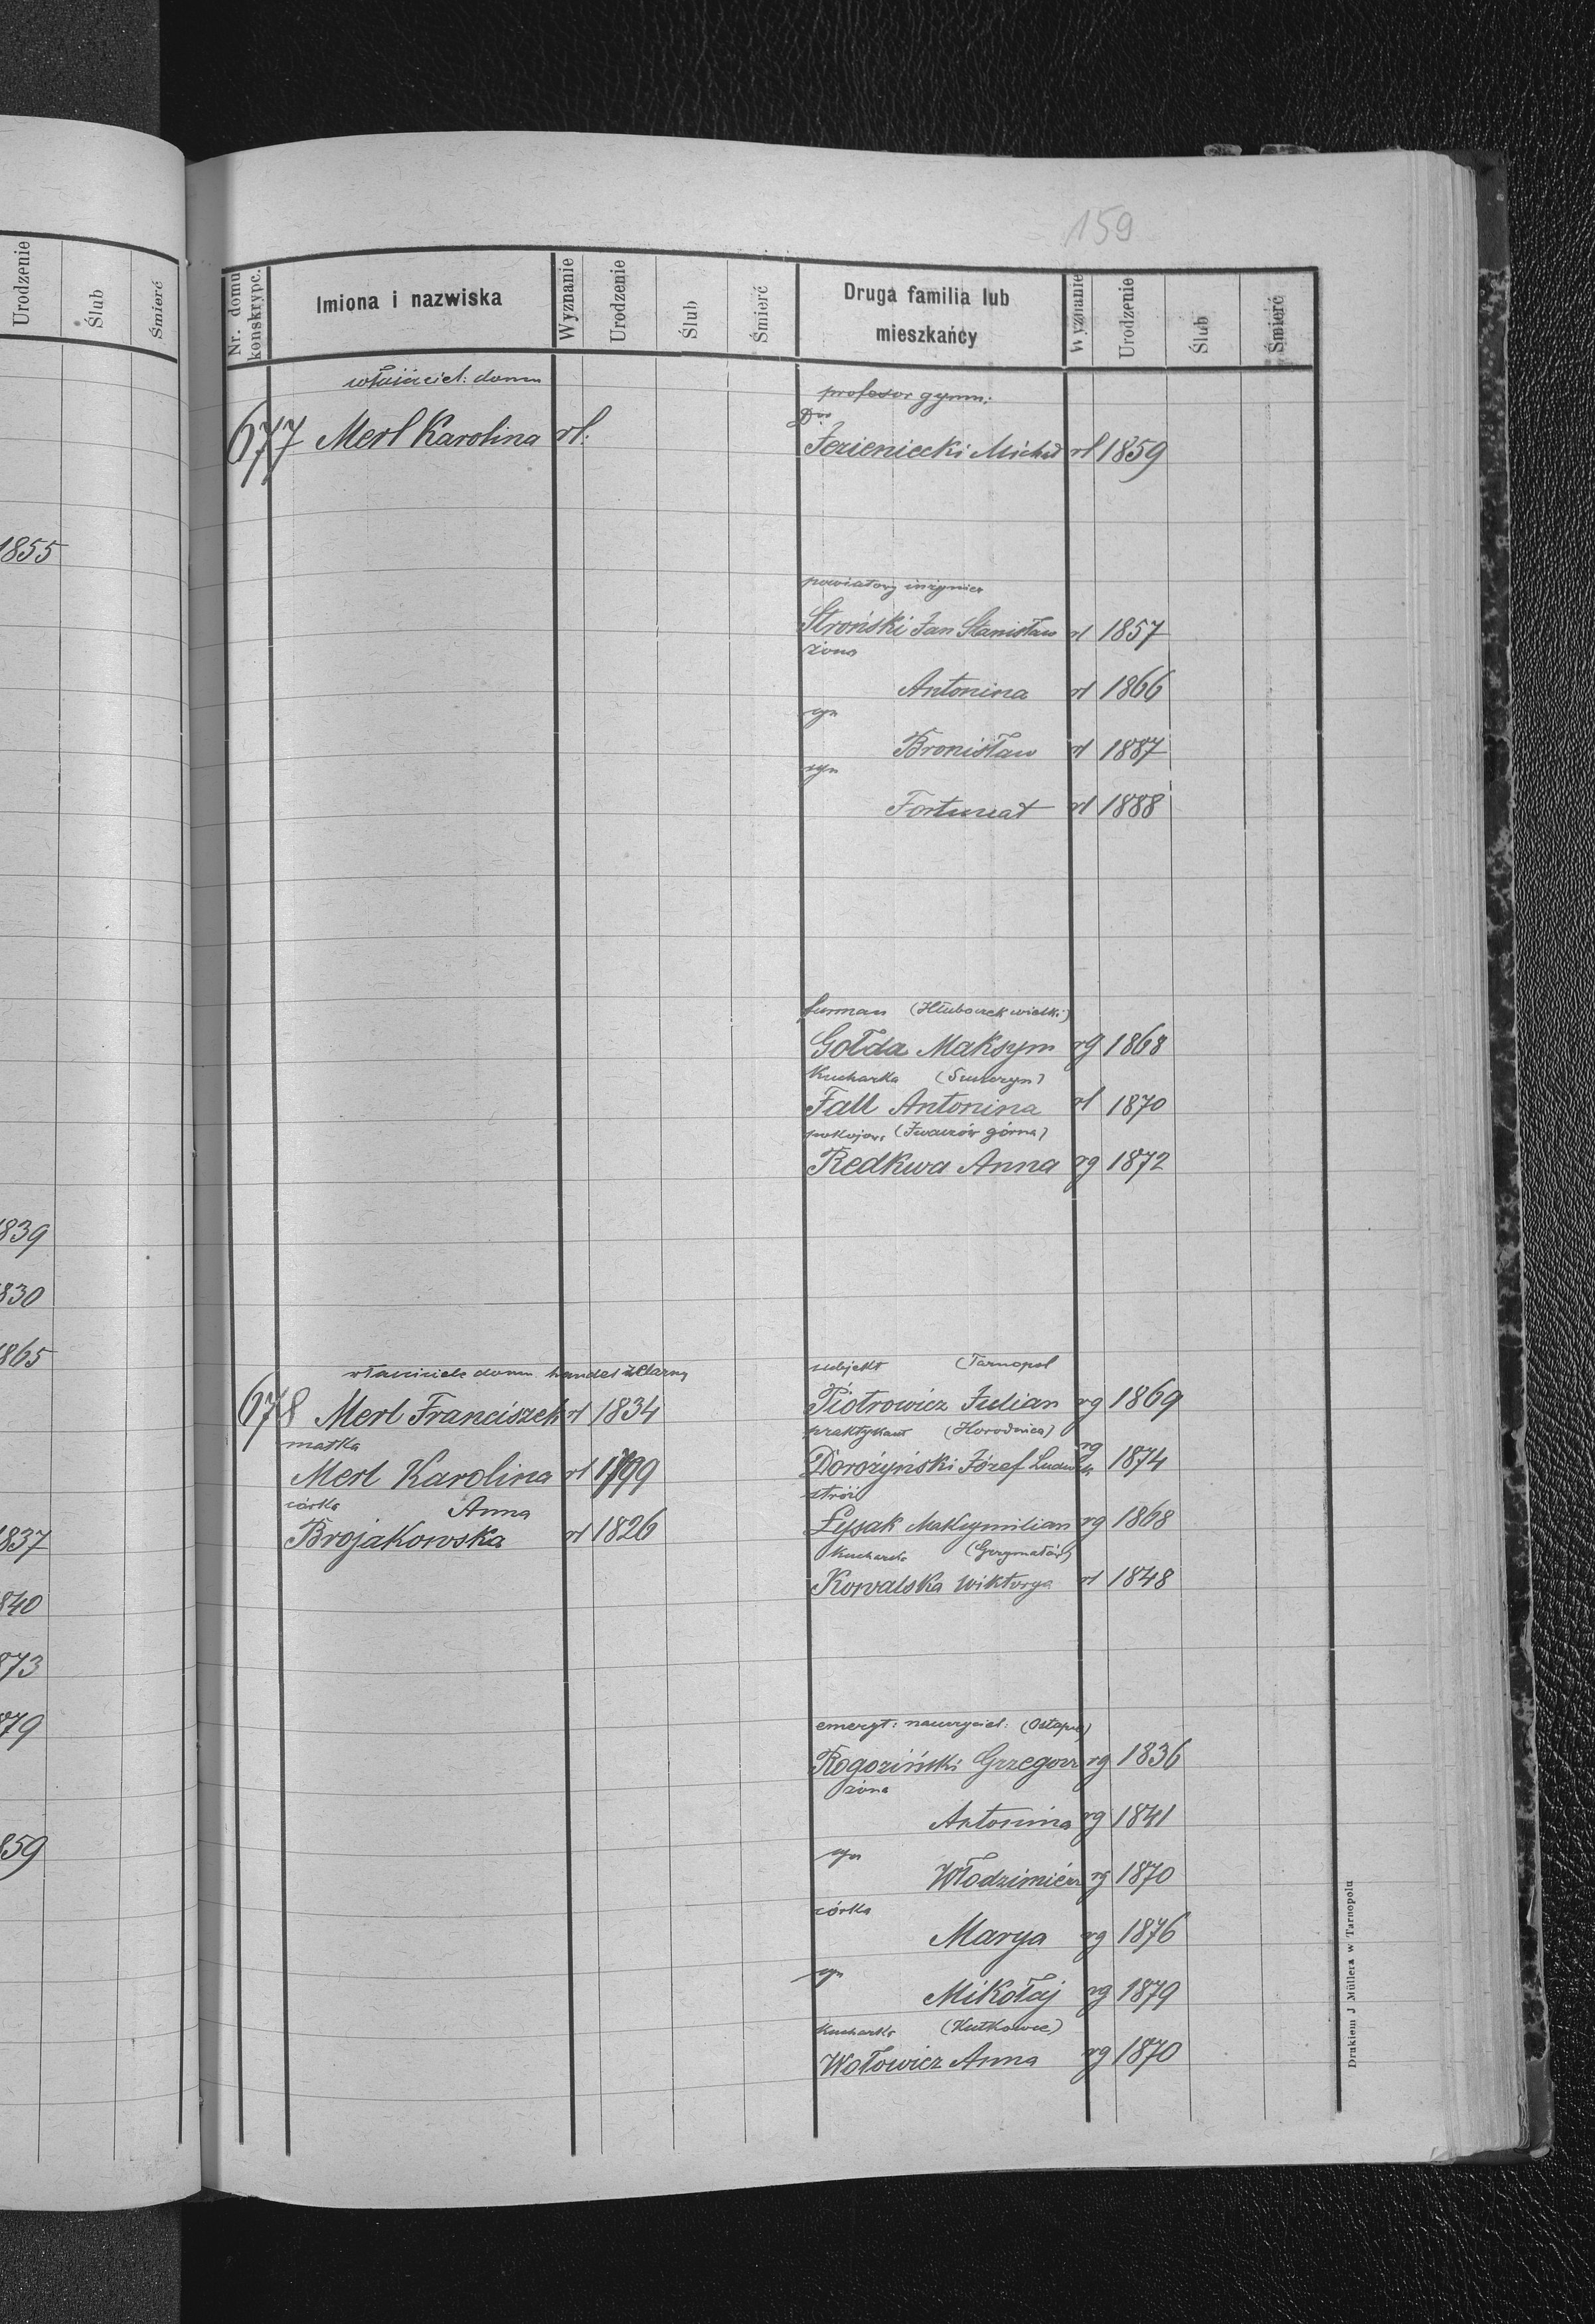 159
Urodzenie
Ślub
Śmierć
1855
1839
1830
1865
1837
1840
1873
1879
1859
Nr. domu konskrypc.
Imiona i nazwiska
Wyznanie
Urodzenie
Ślub
Śmierć
Druga familia lub
mieszkańcy
Wyznanie
Urodzenie
Ślub
Śmierć
właściciel: domu
677 Merl Karolina rl.
profesor gymn:
Dr.
Jezieniecki Michał rl 1859
powiatowy inżynier
Stroński Jan Stanisław rl 1857
żona
Antonina rl 1866
syn
Bronisław rl 1887
syn
Fortunat rl 1888
furman (Hłuboczek wielki)
Gołda Maksym rg 1868
Kucharka
Fall Antonina rl 1870
pokojow. (Iwaczów górna)
Redkwa Anna rg 1872
właściciele domu handel żelazny
678 Merl Franciszek rl 1834
matka
Merl Karolina rl 1799
córka Anna
Brojakowska rl 1826
subjekt (Tarnopol
Piotrowicz Julian rg 1869
praktykant (Horodnica)
Dorożyński Józef Ludwik rg 1874
stróż
Łysak Maksymilian rg 1868
Kucharka (Grzymałów)
Kowalska Wiktorya rl 1848
emeryt: nauczyciel: (Ostapie)
Rogoziński Grzegorz rg 1836
żona
Antonina rg 1841
syn
Włodzimierz rg 1870
córka
Marya rg 1876
syn
Mikołaj rg 1879
Kucharka (Kutkowce)
Wołowicz Anna rg 1870
Drukiem J Müllera w Tarnopolu